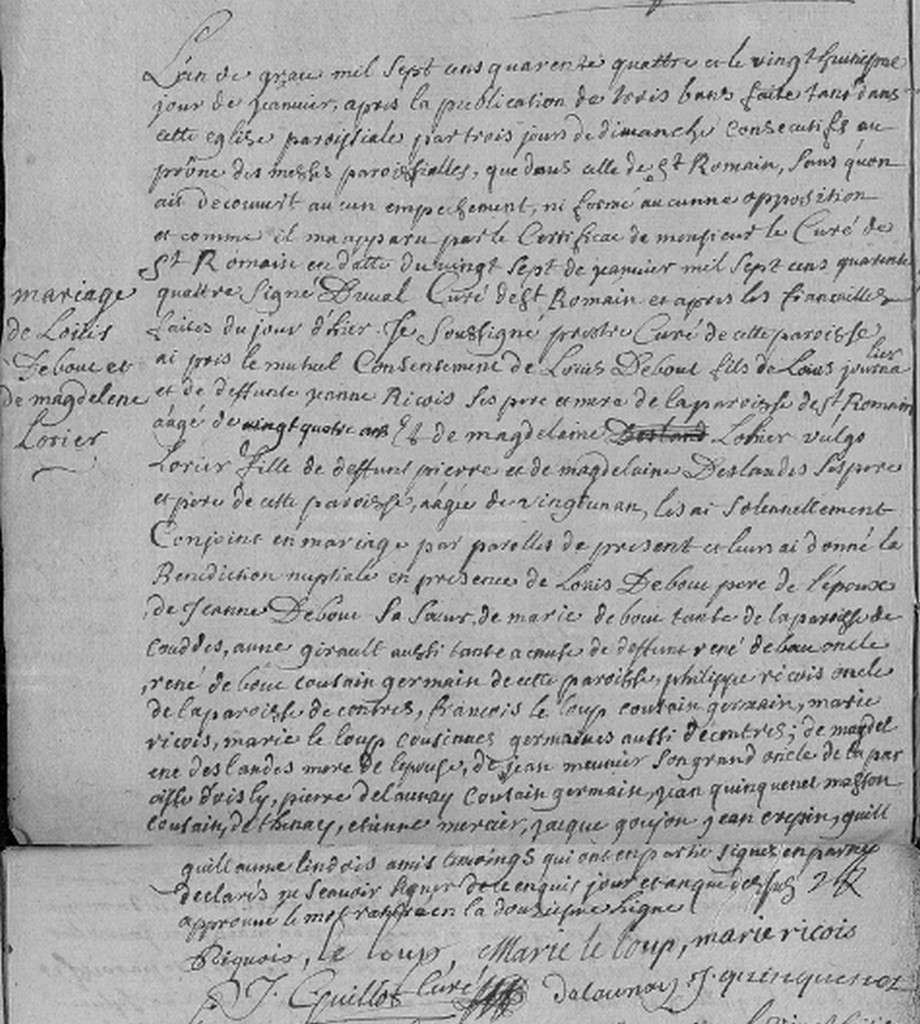 L'an de grace mil sept cens quarente quattre et le vingt huitiesme
jour de janvier, apres la publication de trois bans faite tant dans
cette eglise paroissiale par trois jours de dimanche consecutifs au
prône des messes paroissialles, que dans celle de St Romain, sans qu'on
ait decouvert aucun empechement, ni formé aucunne opposition
et comme il m'a apparu par le Certificac de monsieur le Curé de
St Romain en datte du vingt sept de janvier mil sept cens quarente
quattre signé Duval Curé de St Romain et apres les fiancailles
faites du jour d'hier. Je soussigné prestre Curé de cette paroisse
ai pris le mutuel Consentement de Louis Debouc fils de Louis journalier
et de deffunte jeanne Ricois ses pere et mere de la paroisse de St Romain
aagé de vingt quatre ans Et de magdelaine Lohier vulgo
Lorier fille de deffunt pierre et de magdelaine Deslandes ses pere
et pere de cette paroisse, aagée de vingt un an, les ai solennellement
Conjoint en mariage par parolles de present et leurs ai donné la
Benediction nuptiale en presence de Louis Debouc pere de l'epoux
de Jeanne Debouc sa soeur, de marie debouc tante de la paroisse de
couddes, anne girault aussi tante a cause de deffunt rené debouc oncle
, rené debouc cousain germain de cette paroisse, philippe ricois oncle
de la paroisse de contres, francois le loup cousain germain, marie
ricois, marie le loup cousinnes germaines aussi de contres; de magdel
ene deslandes mere de l'epouse, de jean meunier son grand oncle de la par
oisse d'oisly, pierre delaunay cousain germain, jean quinquenet masson
cousain, de thenay, etienne mercier, jacque goujon, jean crepin, guill
guillaume lindois amis temoings qui ont en partie signez en partie
declarés ne scavoir signer de ce enquis jour et an que dessus
approuvé le mot raturé en la douziesme ligne
Riquois, le loup, Marie le loup, marie ricois
J. Guillot Curé delaunay J. quinquenet
mariage
de Louis
Debouc et
de magdelene
Lorier